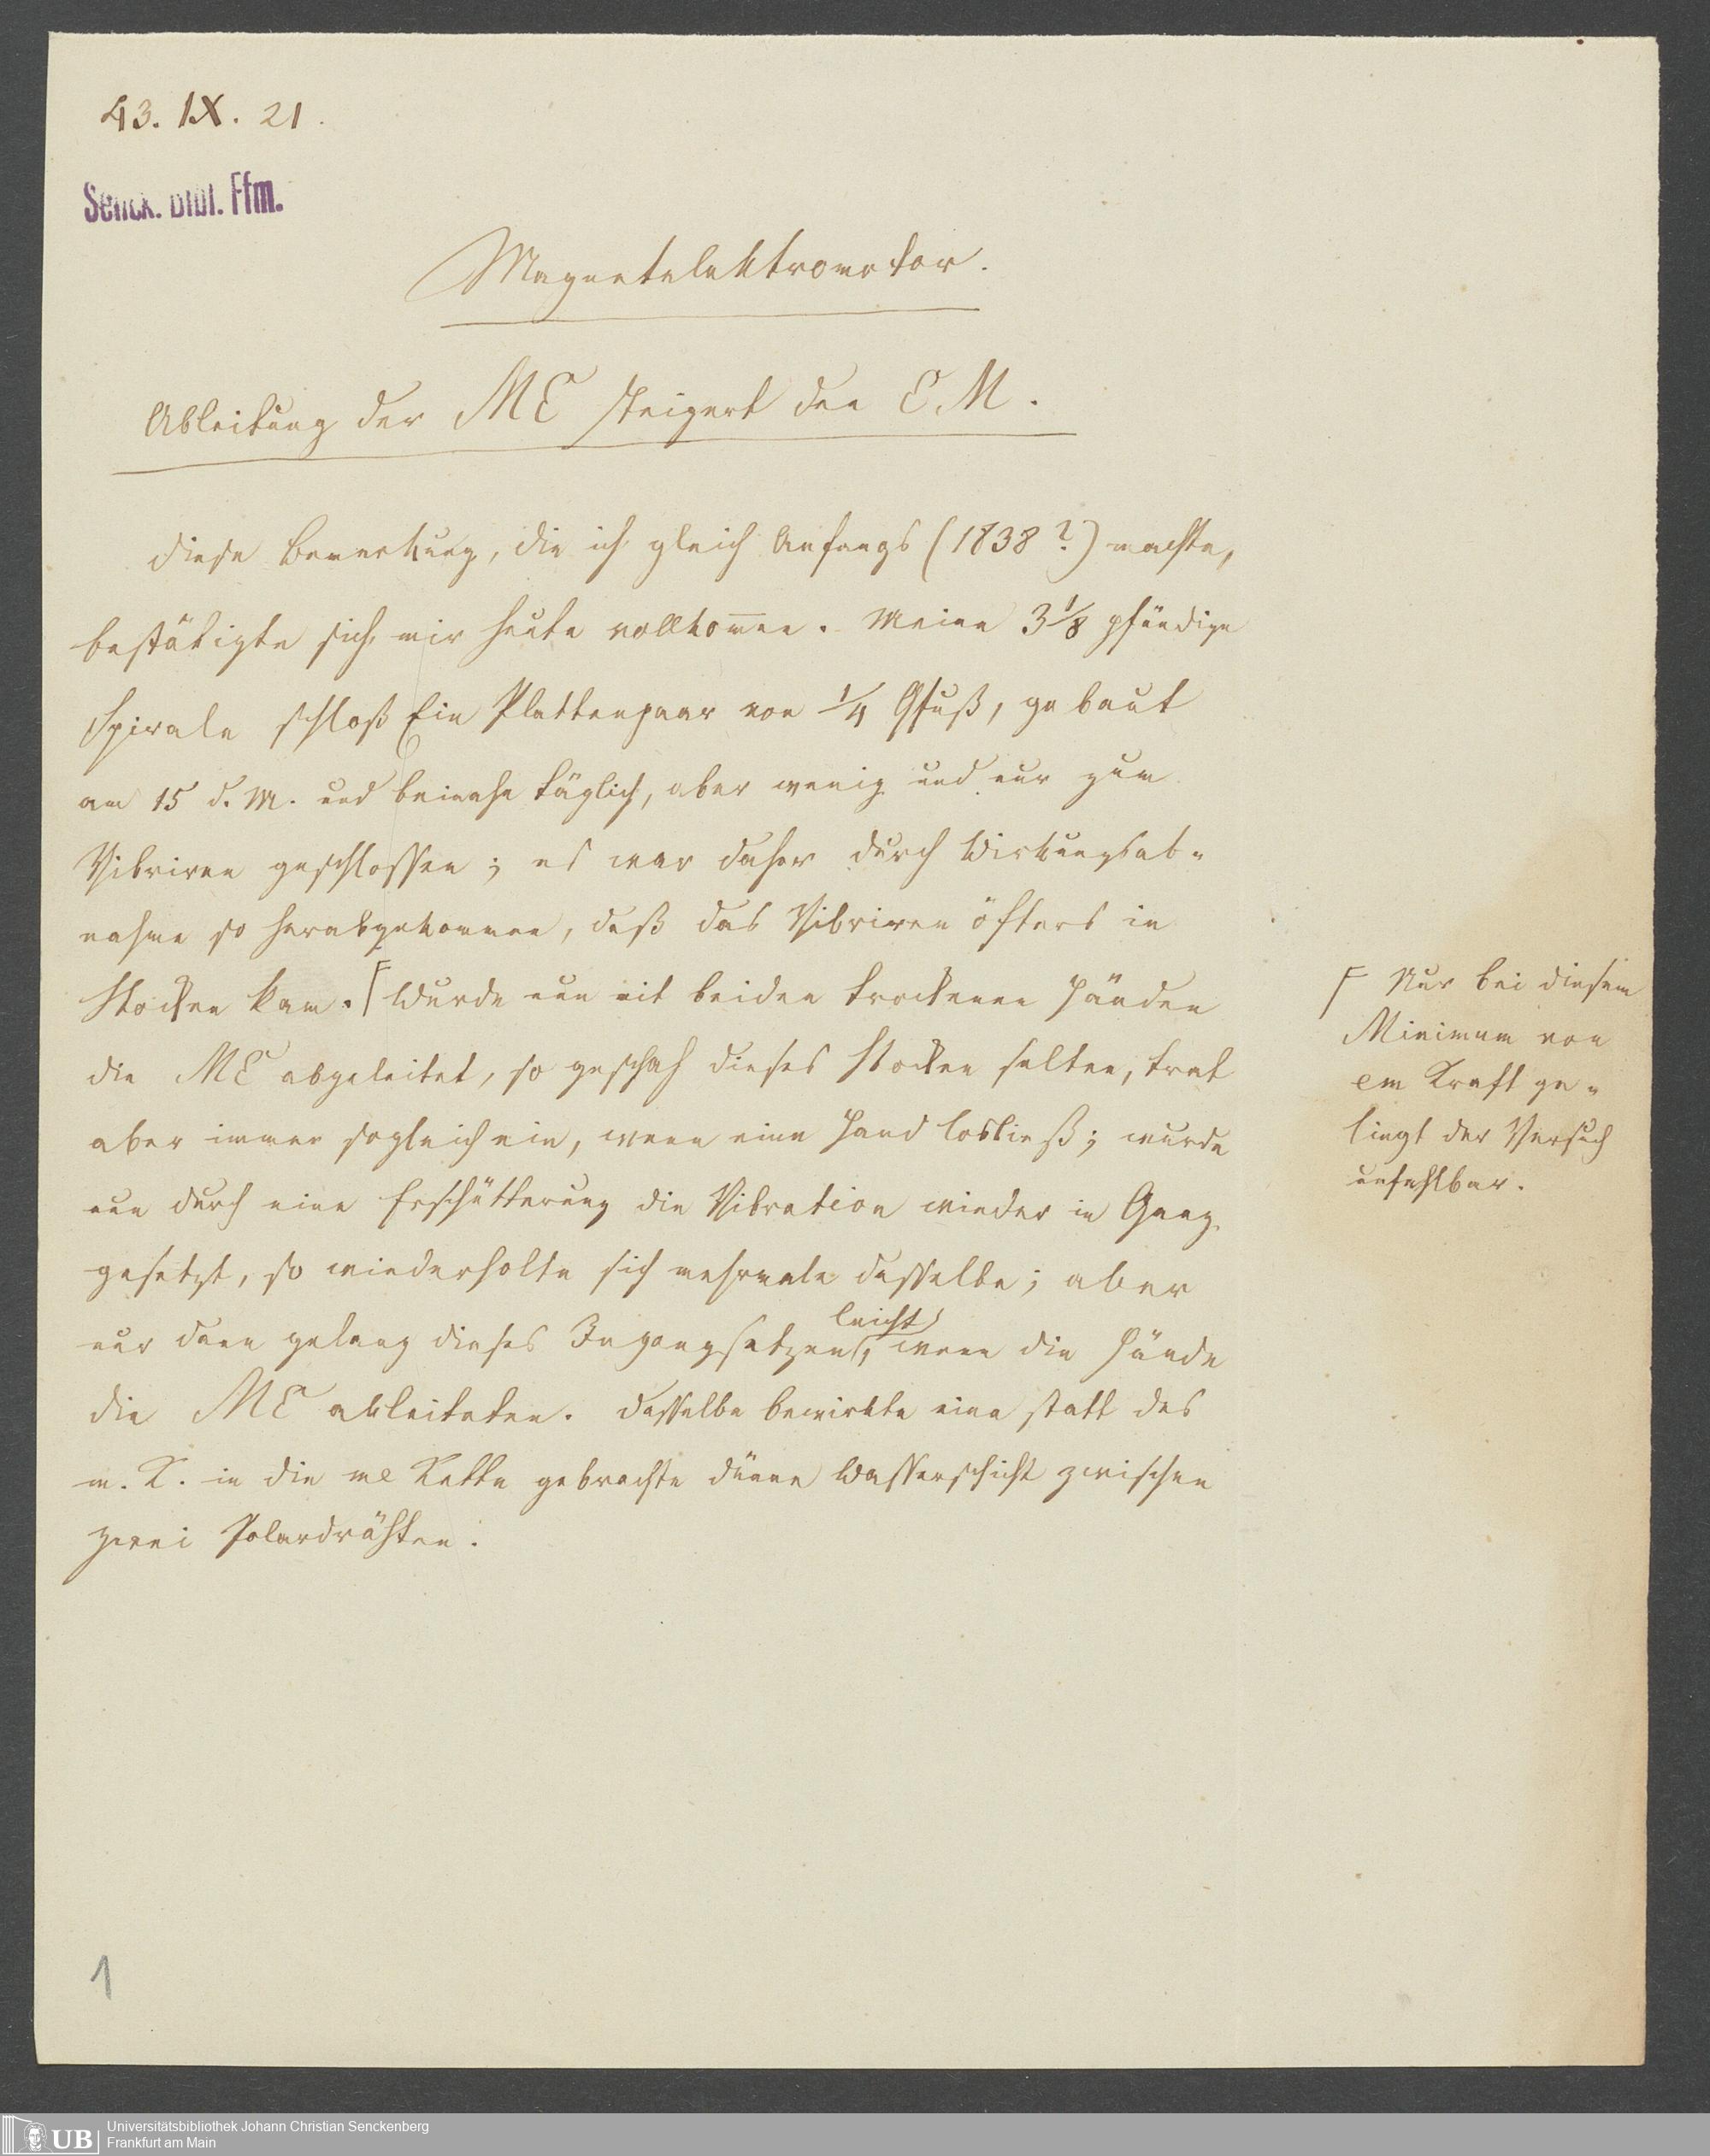 43. IX. 21.
Senck. Bibl. Ffm.
Magnetelektromotor.
Ableitung der ME steigert den E.M.
Diese Bemerkung, die ich gleich Anfangs (1838?) machte,
bestätigte sich mir heute vollkom̅en. Meine 3 1/8 pfündige
Spirale schloß Ein Plattenpaar von 1/4 Qfuß, gebaut
am 15 d. M. und beinahe täglich, aber wenig und nur zum
Vibriren geschlossen; es war daher durch Wirkungsab-
nahme so herabgekommen, daß das Vibriren öfters in
Stocken kam. Wurde nun mit beiden trockenen Händen
die ME abgeleitet, so geschah dieses Stocken selten, trat
aber immer sogleich ein, wenn eine Hand losließ; wurde
nun durch eine Erschütterung die Vibration wieder in Gang
gesetzt, so wiederholte sich mehrmale dasselbe; aber
leicht
nur dann gelang dieses Ingangsetzen, wenn die Hände
die ME ableiteten. Dasselbe bewirkte eine statt des
m. K. in die me Kette gebrachte dünne Wasserschicht zwischen
zwei Polardrähten.
Nur bei diesem
Minimum von
em Kraft ge-
lingt der Versuch
unfehlbar.
1
UB
Universitätsbibliothek Johann Christian Senckenberg
Frankfurt am Main